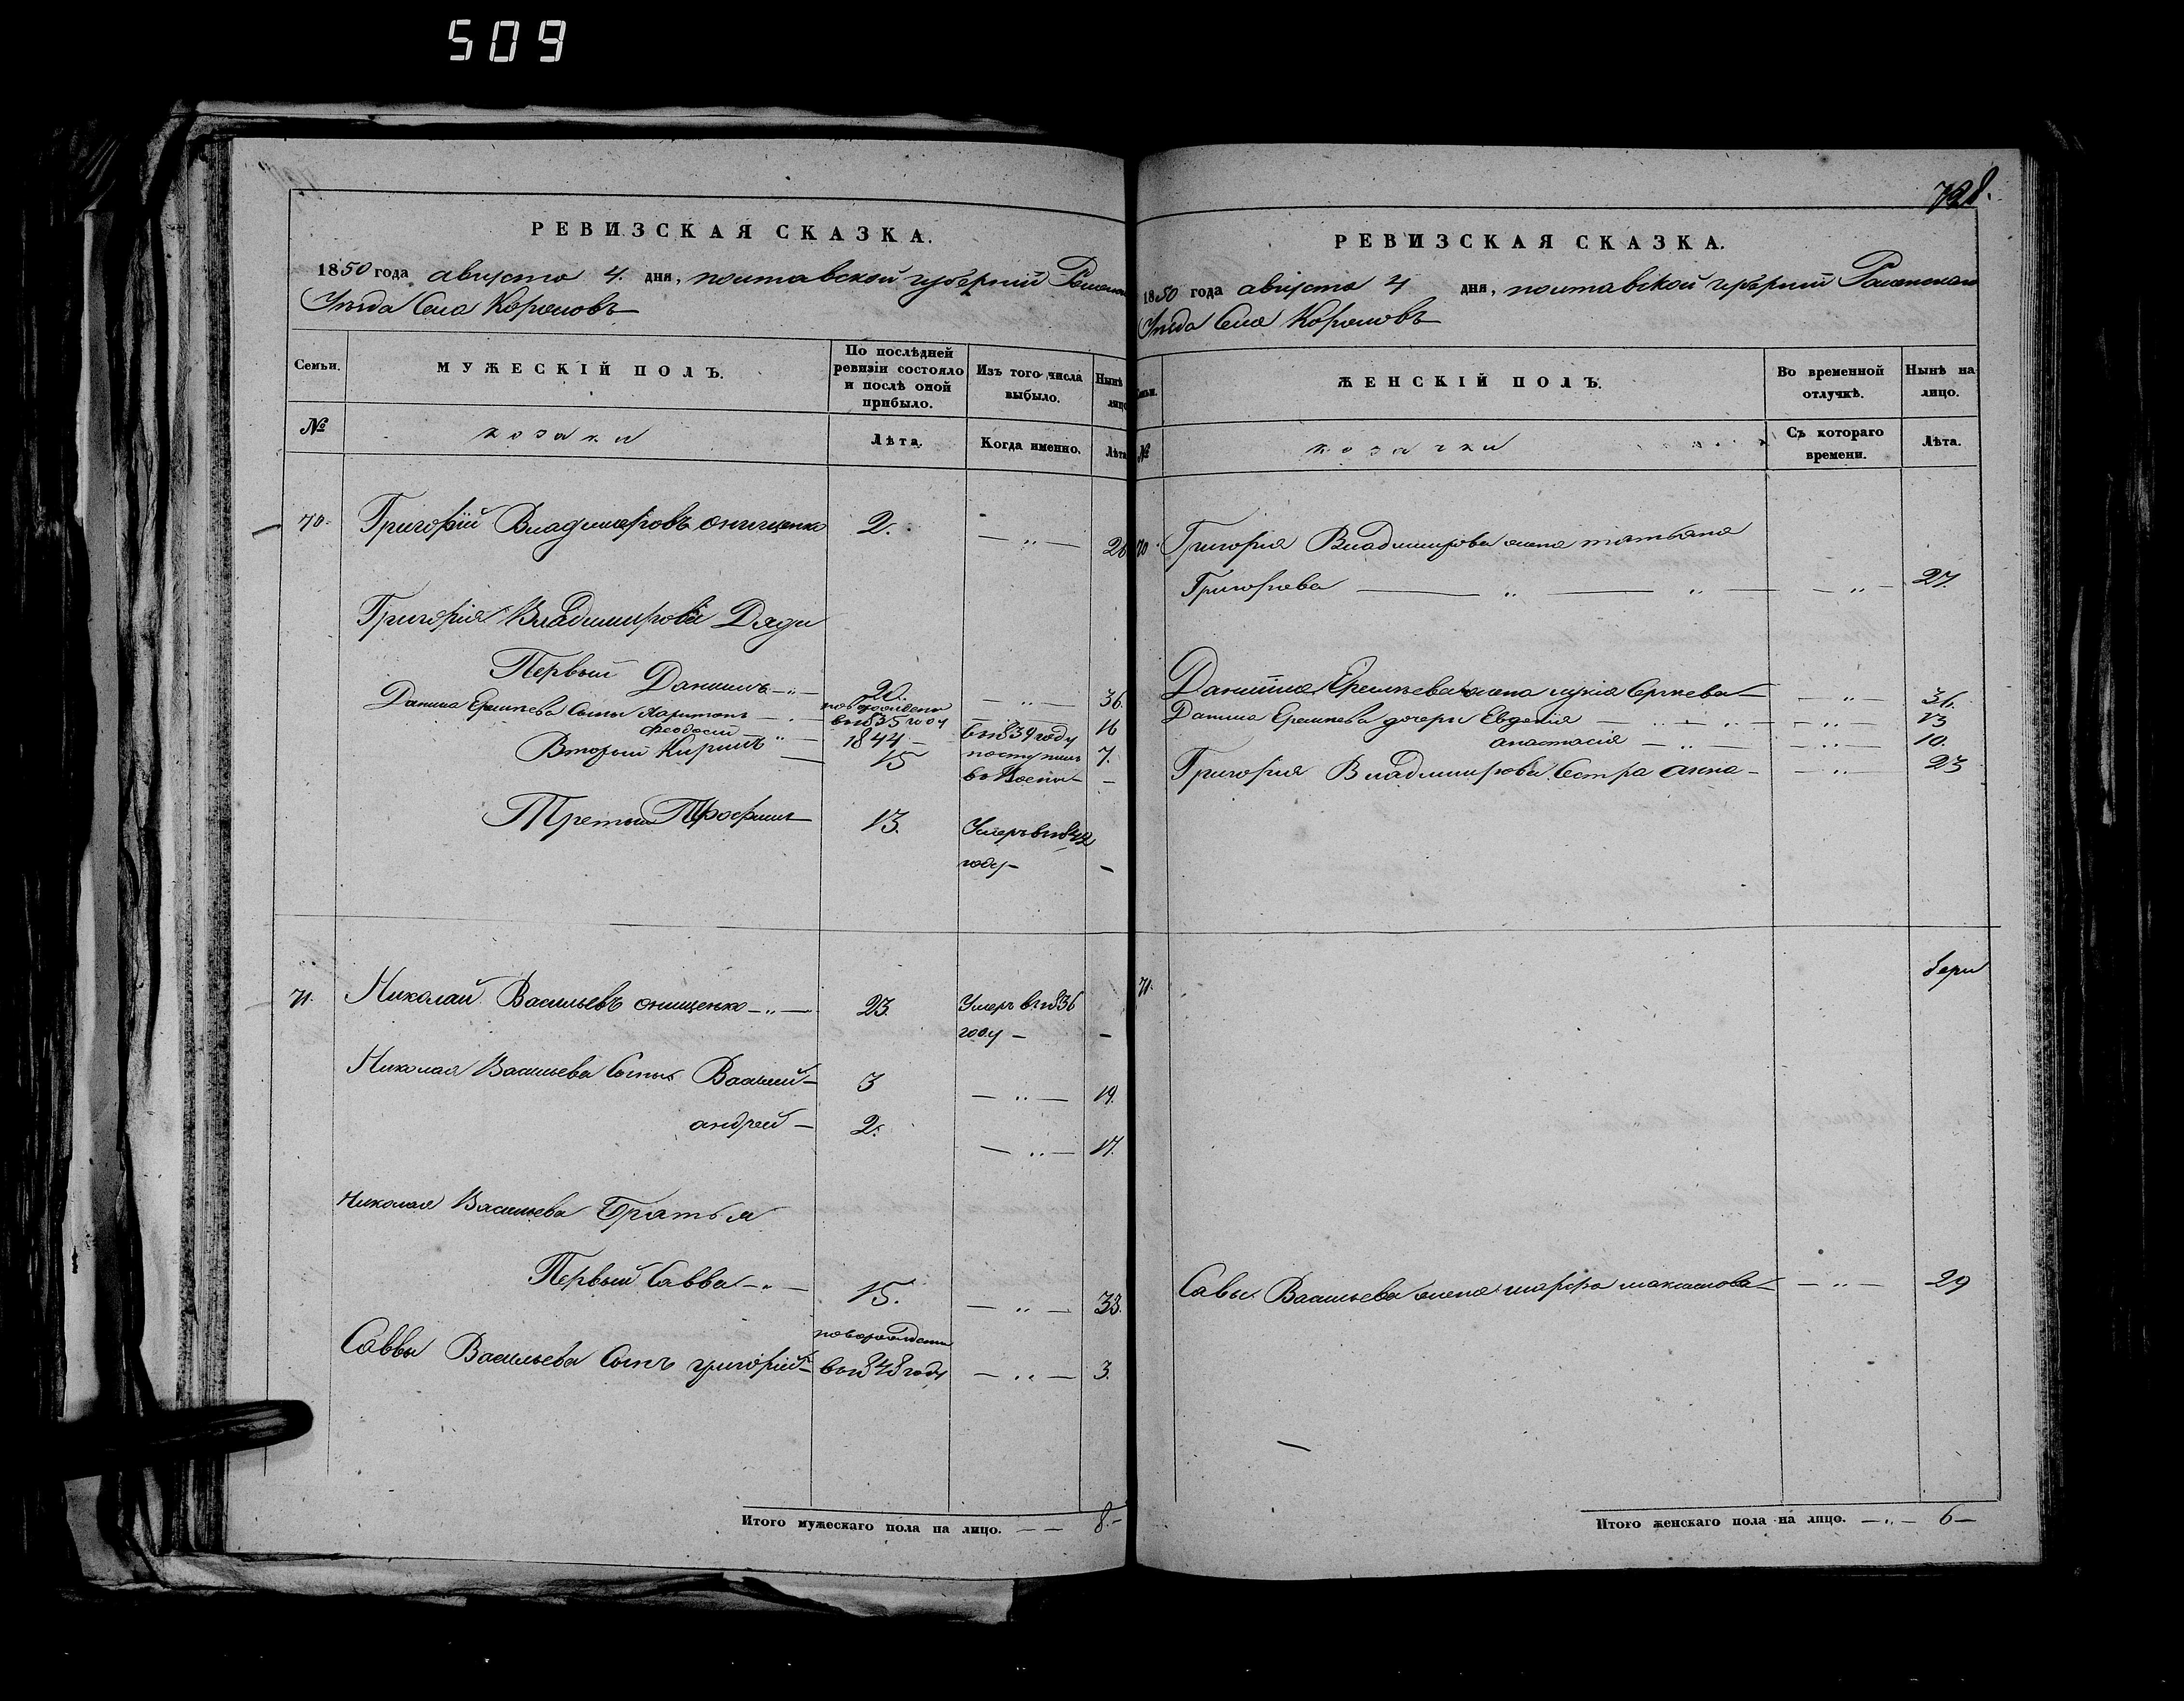 509
РЕВИЗСКАЯ СКАЗКА.
1850 года августа 4. дня, полтавской губерній
Уезда Села
Семьи.
МУЖЕСКІЙ ПОЛЪ.
По послѣдней ревизіи состояло и послѣ оной прибыло.
Изъ того числа выбыло.
Нынѣ
лицо
№
козаки
Лѣта.
Когда именно.
Лѣта
70. Григорій Владимировъ онищенко 2. — „ —
Григорія Владимирова Дяди
Первый Данилъ — „ — 20. — „ — 36.
Данила Еремѣева Сынъ Харитонъ — новорожденъ в 1835 году 16
Феодосій „ — 1844 — 7.
Второй Кирилъ — 15 в 1839 году поступилъ в Военн — —
Третій Трофимъ 13. Умеръ в 1842 году — —
71. Николай Васильевъ онищенко — „ — 23. Умеръ в 1836 году — —
Николая Васильева Сыны Василий — 3 — „ — 19.
андрей — 2. — „ — 17.
Николая Васильева Братья
Первый Савва — „ — 15. — „ — 33.
Саввы Васильева Сынъ григорій — новорожденъ в 1848 году — „ — 3.
Итого мужескаго пола на лицо. — — 8. —
728.
РЕВИЗСКАЯ СКАЗКА.
1850 года августа 4 дня, полтавской губерній
Уезда Села
Семьи.
ЖЕНСКІЙ ПОЛЪ.
Во временной отлучкѣ.
Нынѣ на лицо.
№
козачки
Съ котораго времени.
Лѣта.
70. Григорія Владимирова жена татьяна
Григорьева — „ — „ — — „ — 27.
Данила Еремѣева жена Сергѣева — — „ — 36.
Данила Еремѣева дочери Евдокія — „ — „ — — „ — 13
анастасія — „ — — „ — 10.
Григорія Владимирова Сестра анна — — „ — 23
71.
Савы Васильева жена марфа максимова — — „ — 29
Итого женскаго пола на лицо. — „ — 6 —